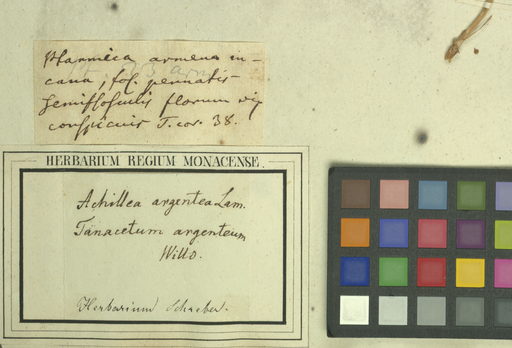 Ptarmica armena in-
cana, fol. pennatis
semiflosculis florum vix
conspicuis T. cor. 38.
HERBARIUM REGIUM MONACENSE.
Achillea argentea Lam.
Tanacetum argenteum
Willd.
Herbarium Schreber.